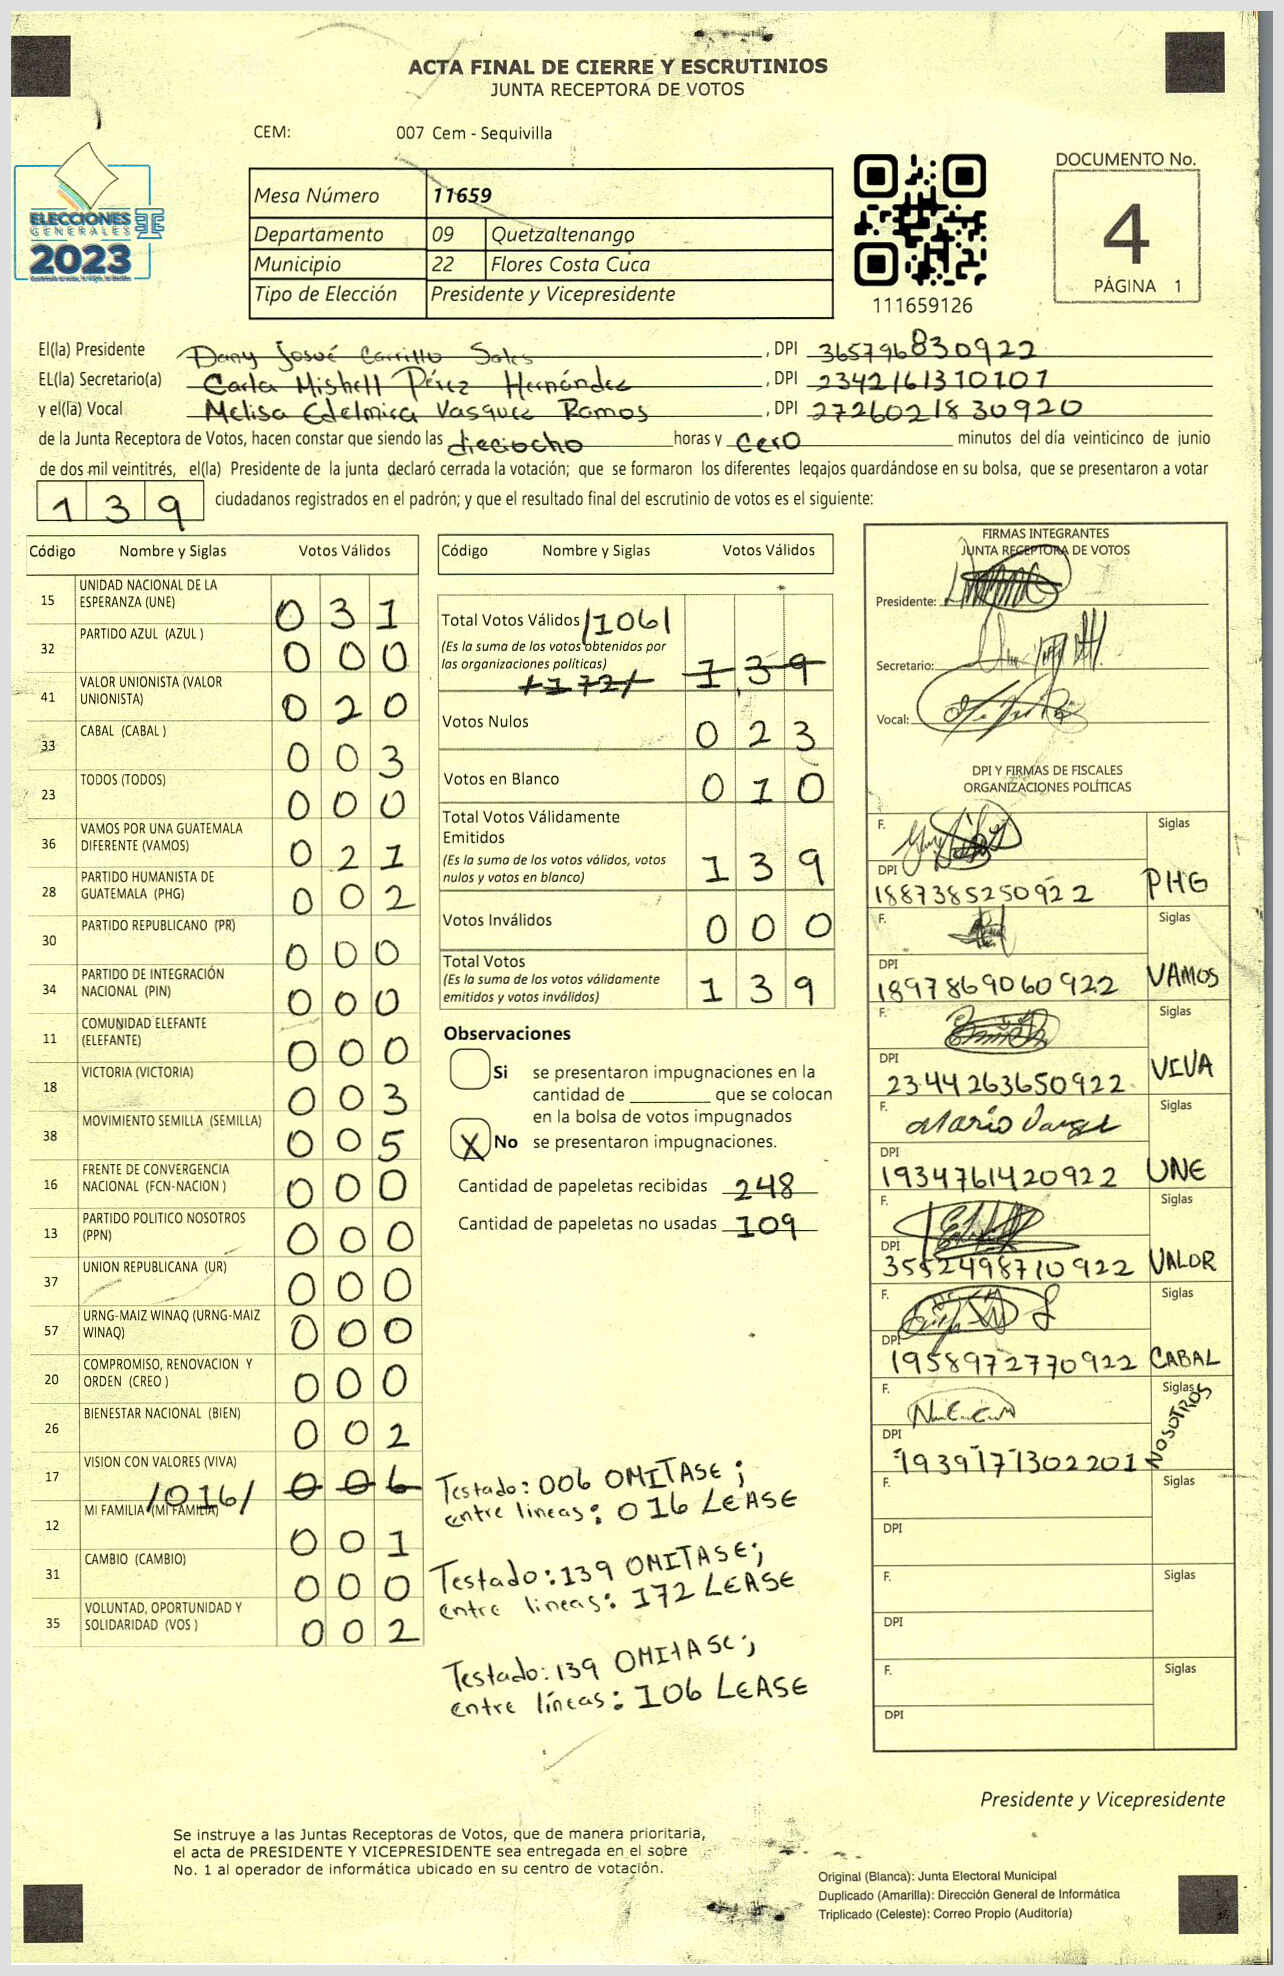 ACTA FINAL DE CIERRE Y ESCRUTINIOS
JUNTA RECEPTORA DE VOTOS
CEM: 007 Cem - Sequivilla
ELECCIONES
GENERALES
2023
Mesa Número 11659
Departamento 09 Quetzaltenango
Municipio 22 Flores Costa Cuca
Tipo de Elección Presidente y Vicepresidente
111659126
DOCUMENTO No.
4
PÁGINA 1
El(la) Presidente Dany Josué Carrillo Sales, DPI 365796830922
EL(la) Secretario(a) Carla Mishell Pérez Hernández, DPI 2342161310101
y el(la) Vocal Melisa Edelmira Vasquez Ramos, DPI 2726021830920
de la Junta Receptora de Votos, hacen constar que siendo las dieciocho horas y cero minutos del día veinticinco de junio
de dos mil veintitrés, el(la) Presidente de la junta declaró cerrada la votación; que se formaron los diferentes legajos guardándose en su bolsa, que se presentaron a votar
139 ciudadanos registrados en el padrón; y que el resultado final del escrutinio de votos es el siguiente:
Código Nombre y Siglas Votos Válidos
15 UNIDAD NACIONAL DE LA ESPERANZA (UNE) 031
32 PARTIDO AZUL (AZUL ) 000
41 VALOR UNIONISTA (VALOR UNIONISTA) 020
33 CABAL (CABAL ) 003
23 TODOS (TODOS) 000
36 VAMOS POR UNA GUATEMALA DIFERENTE (VAMOS) 021
28 PARTIDO HUMANISTA DE GUATEMALA (PHG) 002
30 PARTIDO REPUBLICANO (PR) 000
34 PARTIDO DE INTEGRACIÓN NACIONAL (PIN) 000
11 COMUNIDAD ELEFANTE (ELEFANTE) 000
18 VICTORIA (VICTORIA) 003
38 MOVIMIENTO SEMILLA (SEMILLA) 005
16 FRENTE DE CONVERGENCIA NACIONAL (FCN-NACION ) 000
13 PARTIDO POLITICO NOSOTROS (PPN) 000
37 UNION REPUBLICANA (UR) 000
57 URNG-MAIZ WINAQ (URNG-MAIZ WINAQ) 000
20 COMPROMISO, RENOVACION Y ORDEN (CREO ) 000
26 BIENESTAR NACIONAL (BIEN) 002
17 VISION CON VALORES (VIVA) /016/ 006
12 MI FAMILIA (MI FAMILIA) 001
31 CAMBIO (CAMBIO) 000
35 VOLUNTAD, OPORTUNIDAD Y SOLIDARIDAD (VOS ) 002
Código Nombre y Siglas Votos Válidos
Total Votos Válidos /106/
(Es la suma de los votos obtenidos por
las organizaciones políticas) 139
/172/
Votos Nulos 023
Votos en Blanco 010
Total Votos Válidamente
Emitidos
(Es la suma de los votos válidos, votos
nulos y votos en blanco) 139
Votos Inválidos 000
Total Votos
(Es la suma de los votos válidamente
emitidos y votos inválidos) 139
Observaciones
Si se presentaron impugnaciones en la
cantidad de ________ que se colocan
en la bolsa de votos impugnados
X No se presentaron impugnaciones.
Cantidad de papeletas recibidas 248
Cantidad de papeletas no usadas 109
Testado: 006 OMITASE;
entre lineas: 016 LEASE
Testado: 139 OMITASE;
entre lineas: 172 LEASE
Testado: 139 OMITASE;
entre líneas: 106 LEASE
FIRMAS INTEGRANTES
JUNTA RECEPTORA DE VOTOS
Presidente:
Secretario:
Vocal:
DPI Y FIRMAS DE FISCALES
ORGANIZACIONES POLÍTICAS
F. Siglas
DPI 1887385250922 PHG
F. Siglas
DPI 1897869060922 VAMOS
F. Siglas
DPI 2344263650922 VIVA
F. Mario Siglas
DPI 1934761420922 UNE
F. Siglas
DPI 3552498710922 VALOR
F. Siglas
DPI 1958972770922 CABAL
F. Siglas
DPI 1939171302201 NOSOTROS
F. Siglas
DPI
F. Siglas
DPI
F. Siglas
DPI
Presidente y Vicepresidente
Se instruye a las Juntas Receptoras de Votos, que de manera prioritaria,
el acta de PRESIDENTE Y VICEPRESIDENTE sea entregada en el sobre
No. 1 al operador de informática ubicado en su centro de votación.
Original (Blanca): Junta Electoral Municipal
Duplicado (Amarilla): Dirección General de Informática
Triplicado (Celeste): Correo Propio (Auditoría)